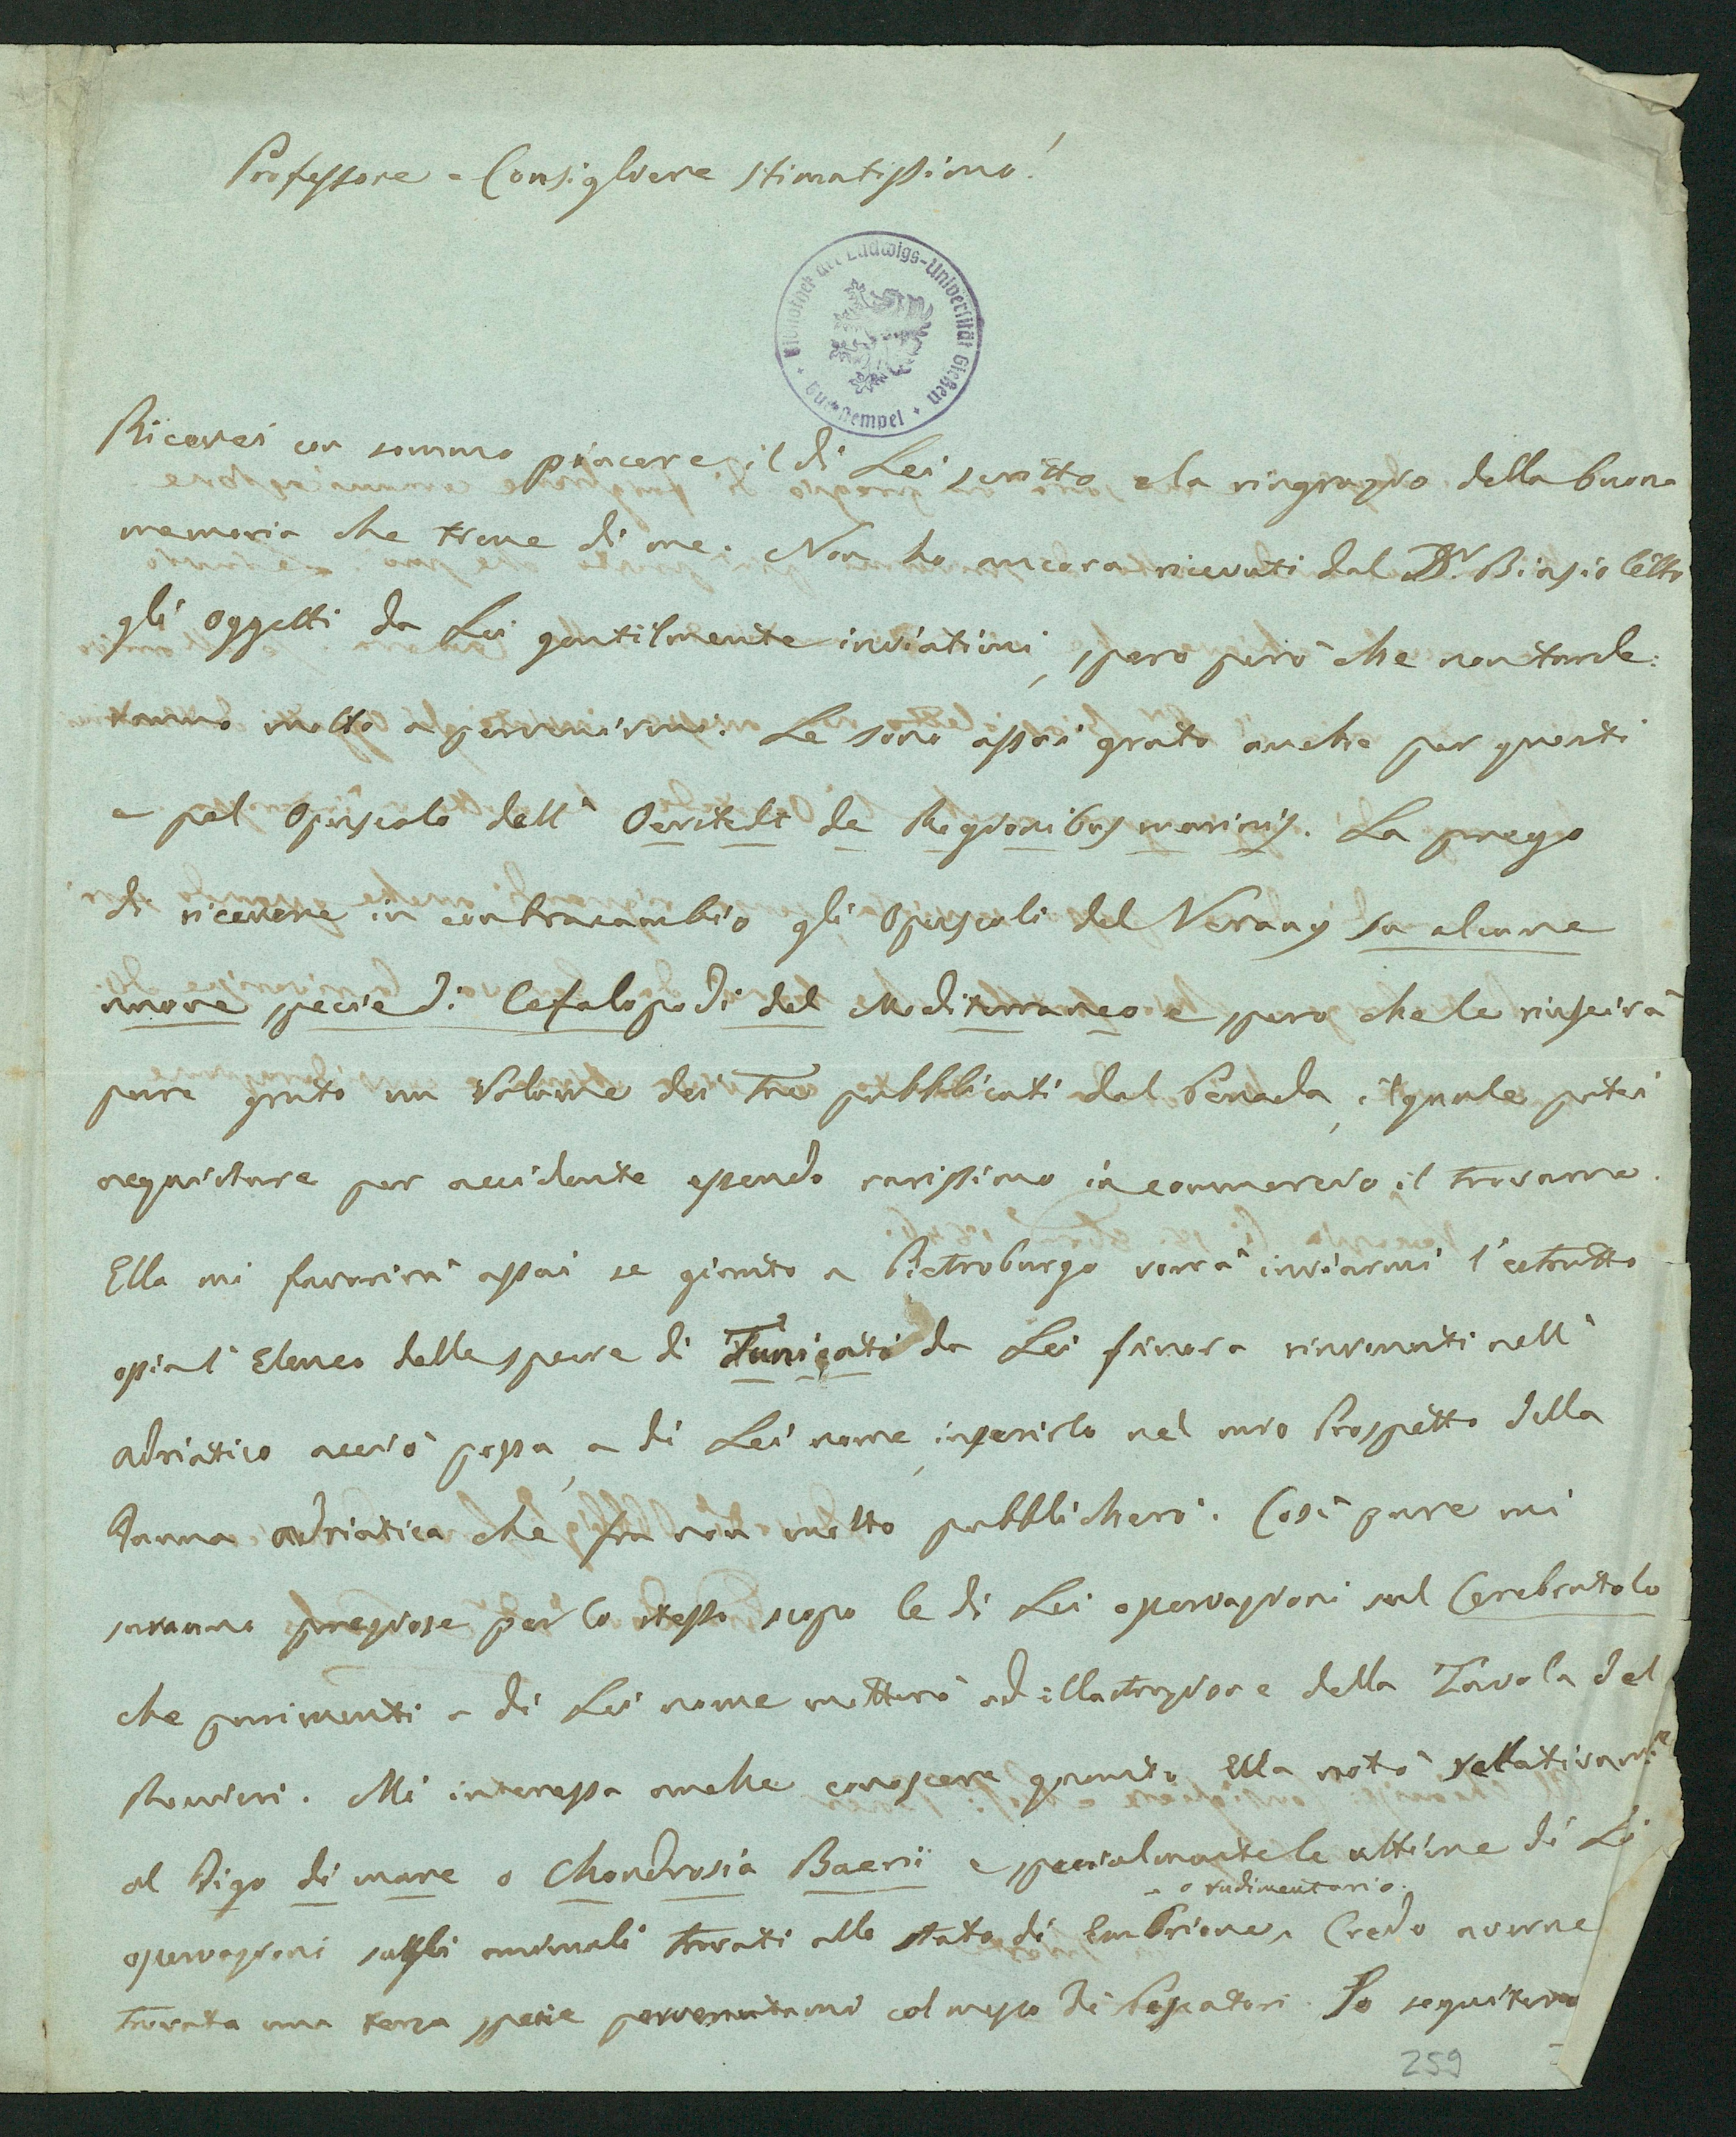 Professore e Consigliere stimatissimo!
Bibliothek der Ludwigs-Universität Gießen
Buchstempel
Ricevei con sommo piacere il di Lei scritto e la ringrazio della buona
memoria che tiene di me. Non ho ancora ricevuti dal Dr. Biasioletto
gli oggetti da Lei gentilmente inviatimi, spero però che non tarde:
ranno molto a pervenirmi. Le sono assai grato anche per questi
e pel Opuscolo dell' Oerstedt de Regionibus marinis. La prego
di ricevere in contracambio gli Opuscoli del Verany su alcune
nuove specie di Cefalopodi del Mediterraneo e spero che le riuscirà
pure grato un Volume dei tre pubblicati dal Penada, il quale potei
acquistare per accidente essendo rarissimo in commercio il trovarne.
Ella mi favorirà assai se giunto a Pietroburgo vorrà inviarmi l'estratto
ossia l'Elenco delle specie di Tunicati da Lei finora rinvenuti nell'
Adriatico acciò possa, a di Lei nome, inserirlo nel mio Prospetto della
Fauna adriatica che fra non molto pubblicherò. Così pure mi
saranno preziose per lo stesso scopo le di Lei osservazioni sul Cerebratolo
che parimenti a di Lei nome metterò ad illustrazione della Tavola del
Renieri. Mi interessa anche conoscere quanto Ella notò rellativamte
al Figo di mare o Chondrosia Baerii e specialmente le ultime di Lei
o rudimentario.
osservazioni sugli animali trovati allo stato di Embrione. Credo averne
trovata una terza specie pervenutami col mezzo di Pescatori. Io seguiterò
259